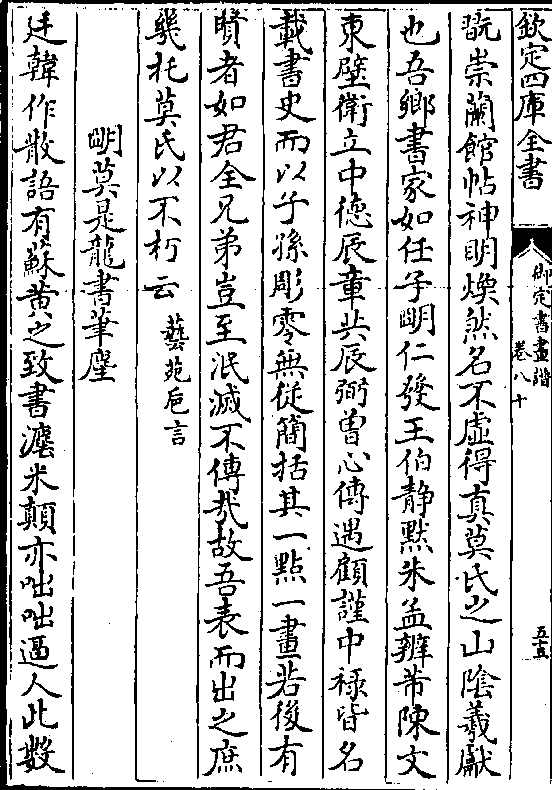 欽定四庫全書
御定書畫譜
卷八十
五十五
翫崇蘭館帖神明煥然名不虛得真莫氏之山陰羲獻
也吾鄉書家如任子明仁發王伯静黙朱孟辨芾陳文
東壁衛立中德辰章共辰弼曾心傳遇顧謹中禄皆名
載書史而以子孫彫零無從簡括其一點一畫若後有
賢者如君全兄弟豈至泯滅不傳哉故吾表而出之庶
幾托莫氏以不朽云 藝苑巵言
明莫是龍書筆麈
廷韓作散語有蘇黄之致書灋米顛亦咄咄逼人此數